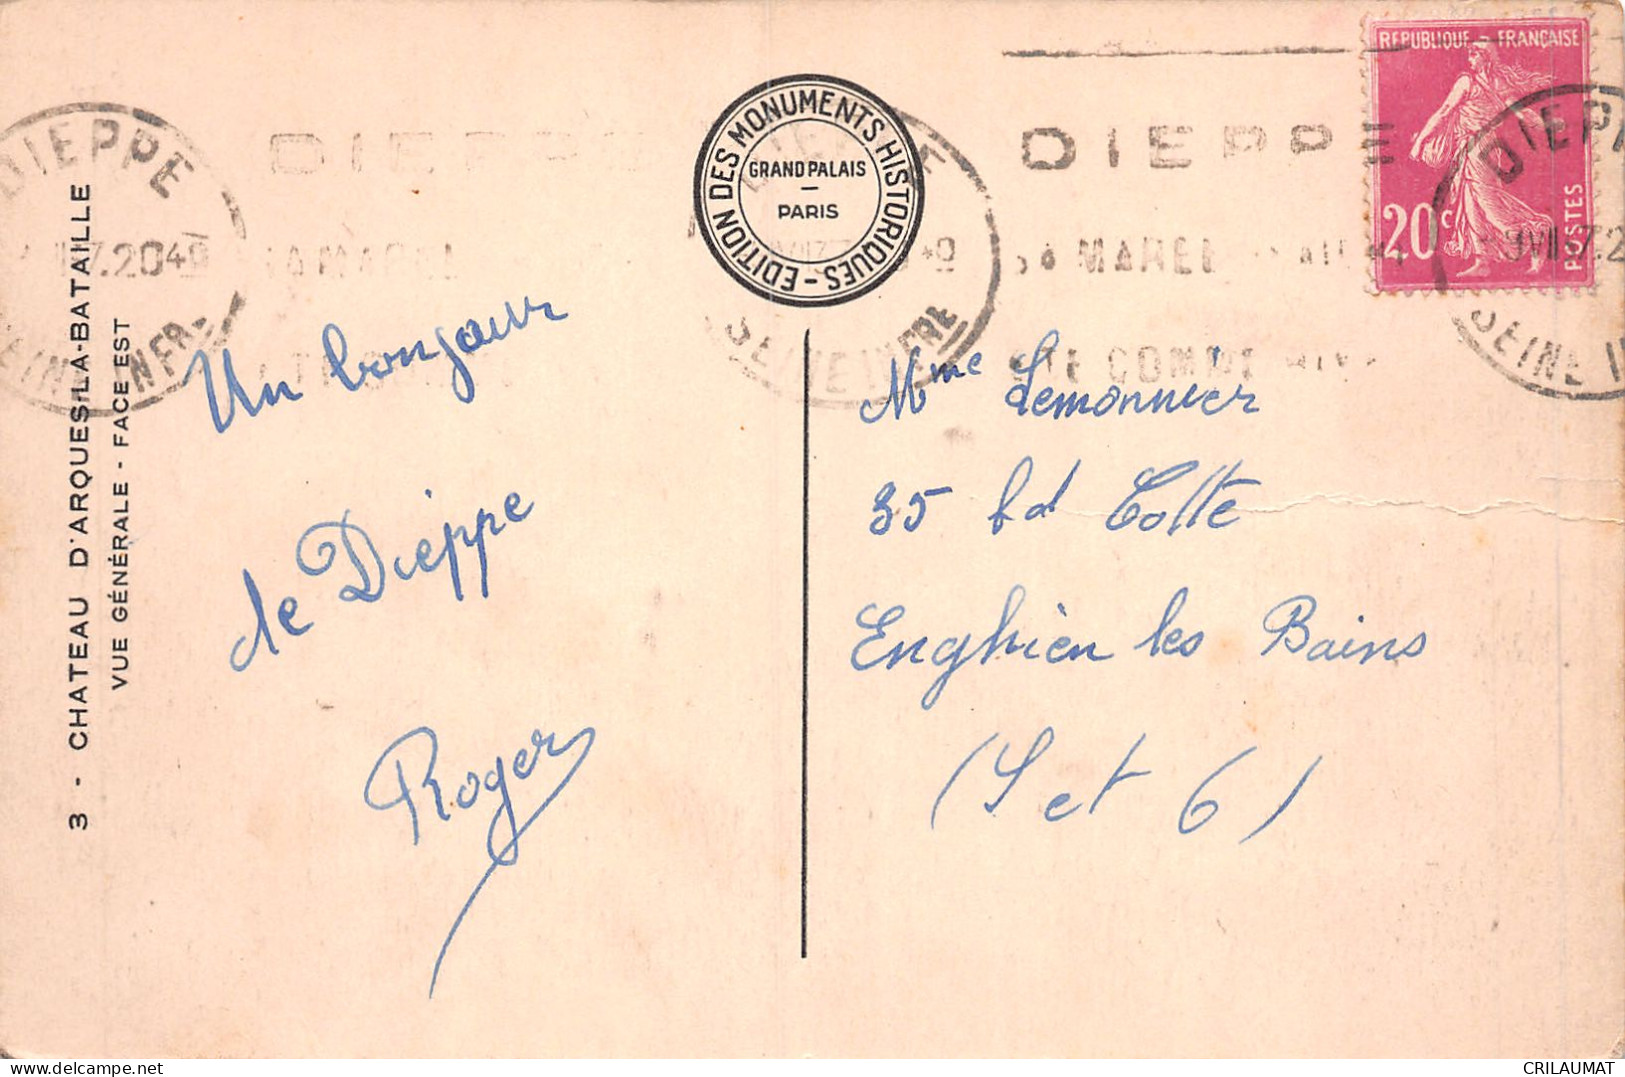 3 - CHATEAU D'ARQUES-LA-BATAILLE
VUE GÉNÉRALE - FACE EST
EDITION DES MONUMENTS HISTORIQUES -
GRAND PALAIS
—
PARIS
REPUBLIQUE - FRANÇAISE
20c
POSTES
DIEPPE
SEINE INFRE
DIEPPE
Un bonjour
de Dieppe
Roger
Mme Lemonnier
35 bd Cotte
Enghien les Bains
(S et 6)
CRILAUMAT